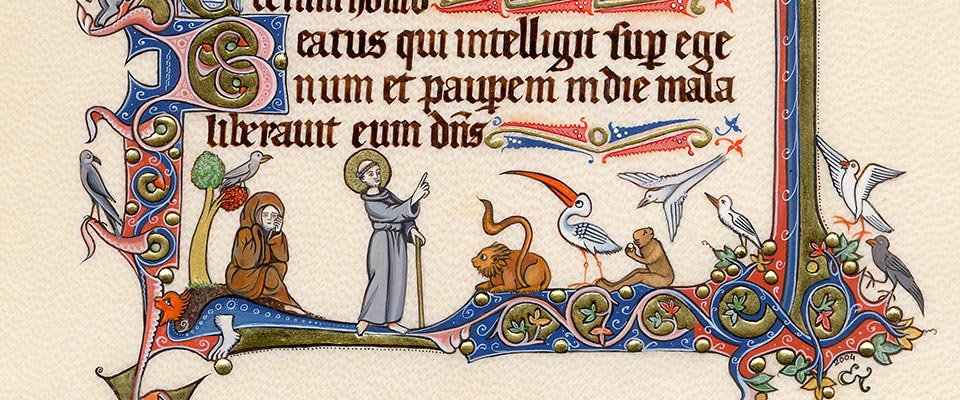 Beatus qui intelligit ſup ege
num et paupem in die mala
liberauit eum dñs
2004